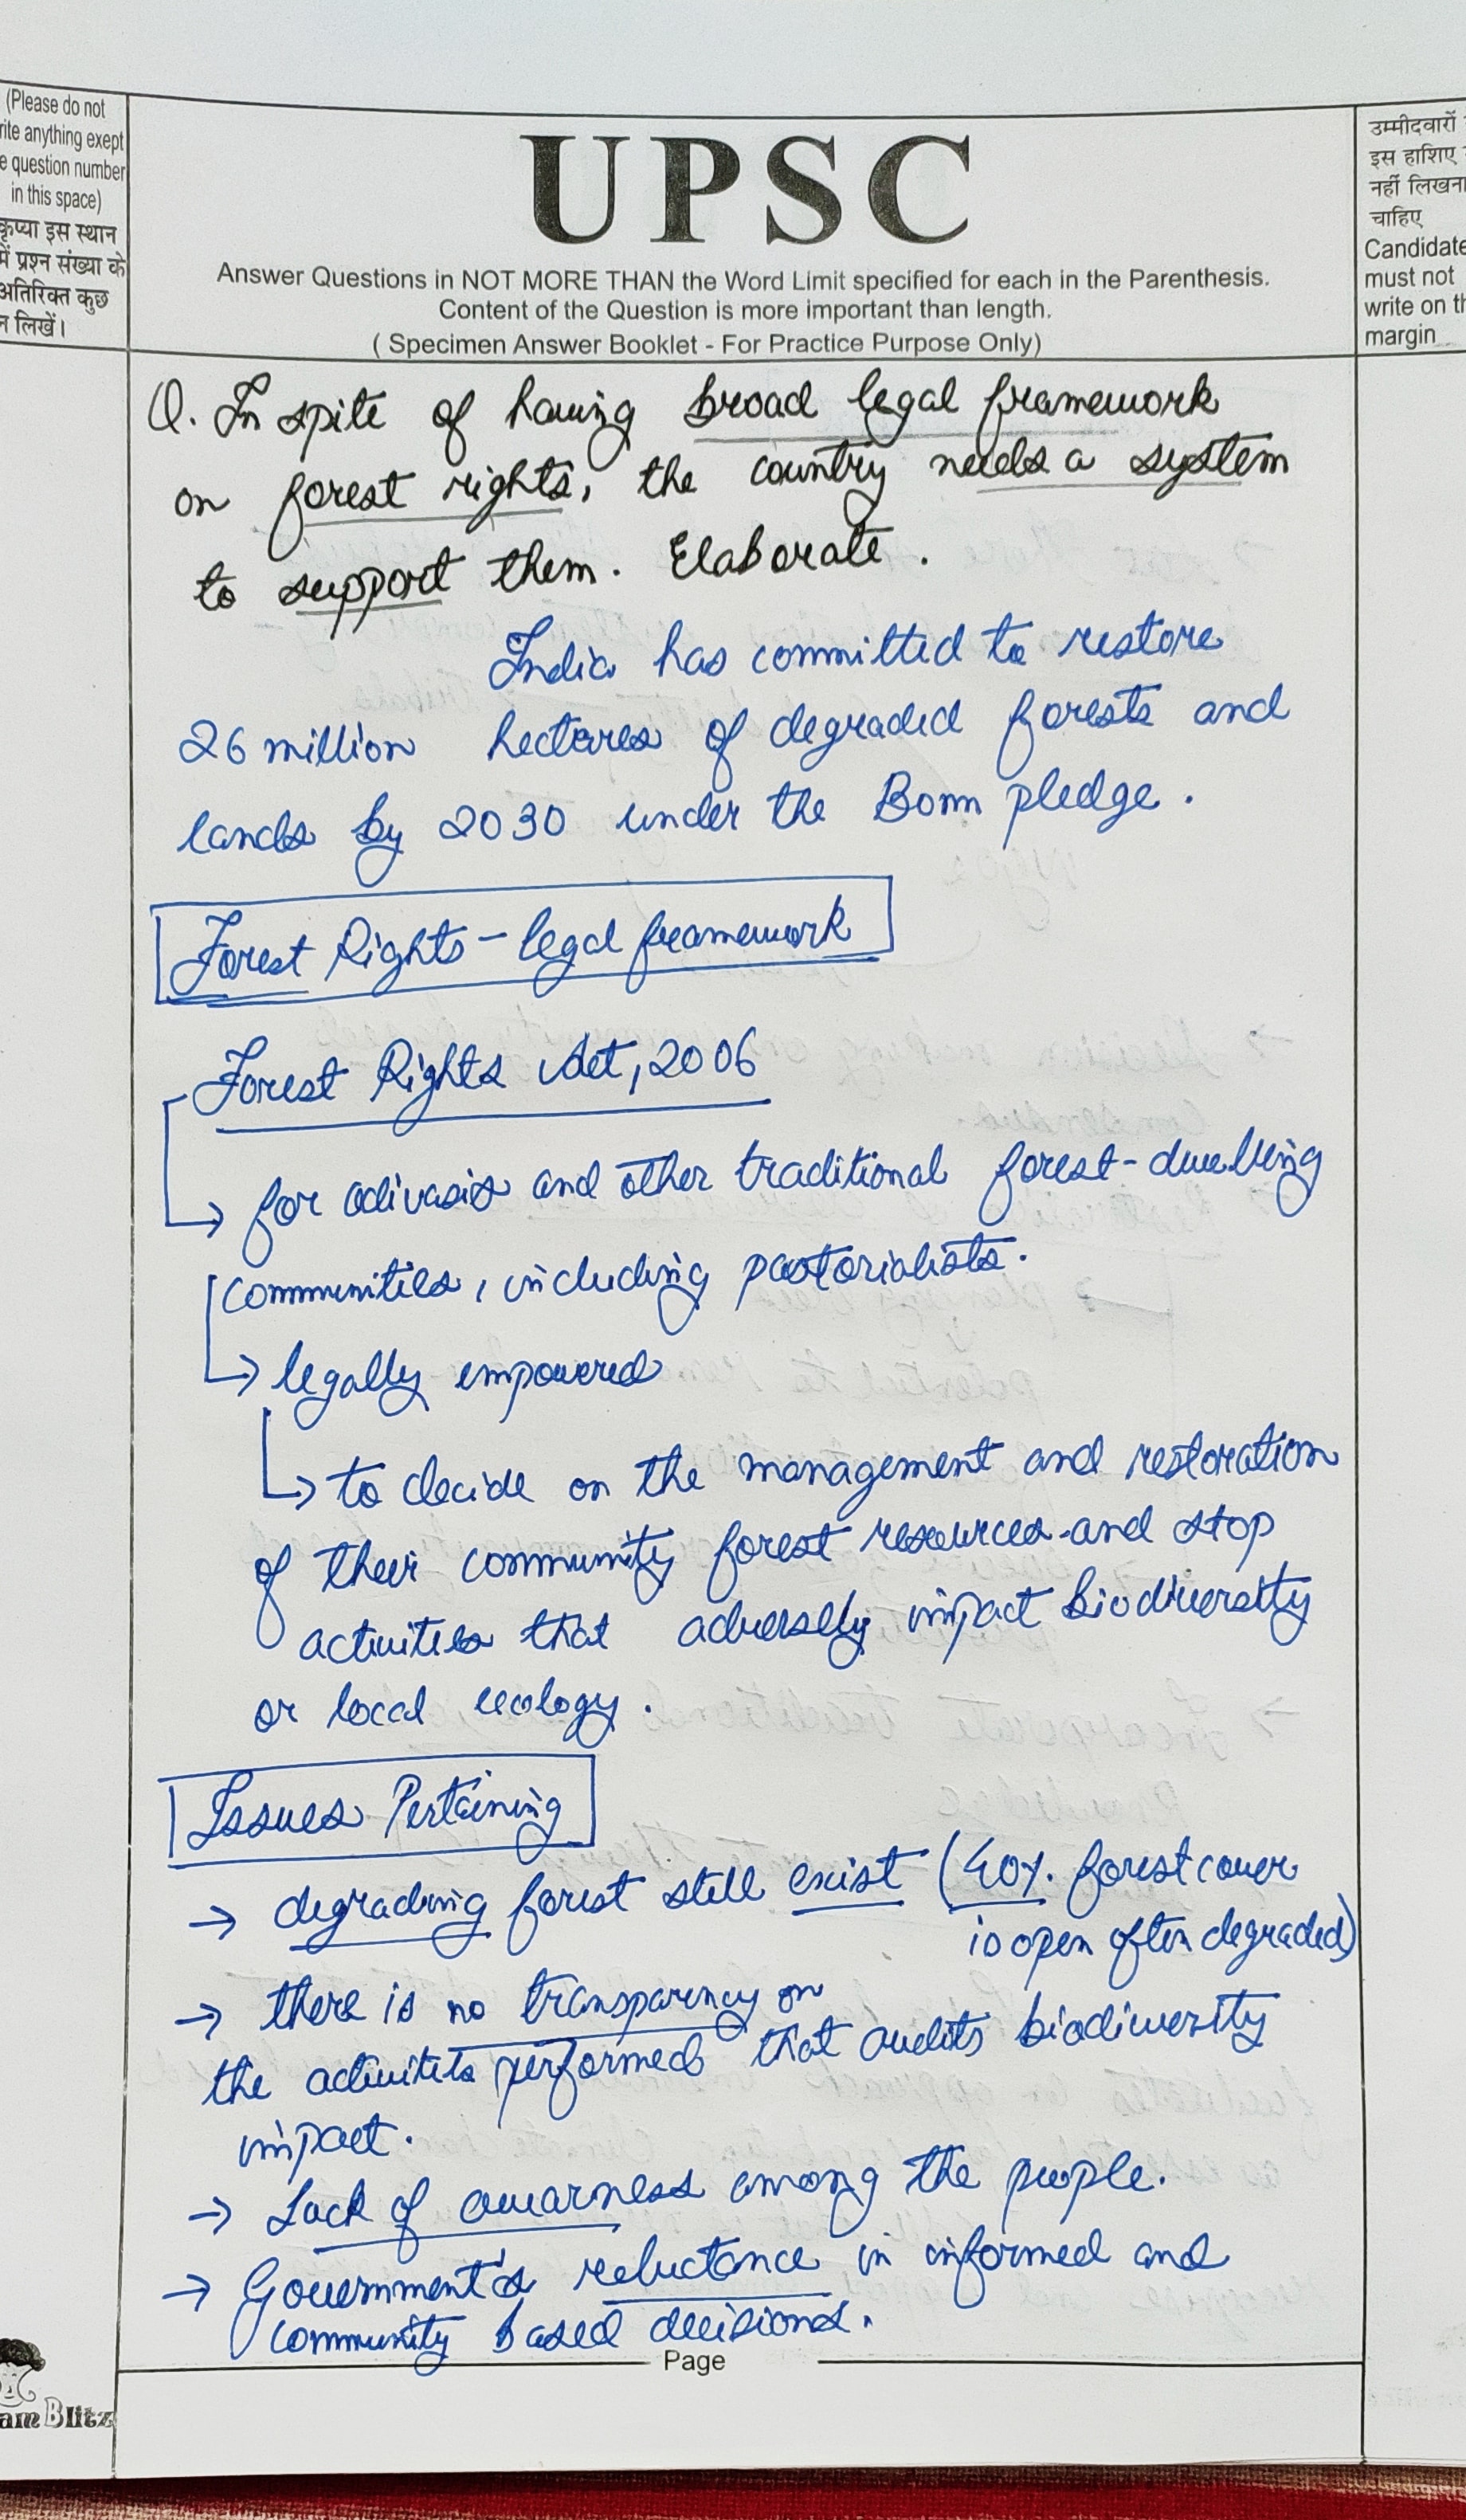 (Please do not
rite anything exept
e question number
in this space)
कृप्या इस स्थान
में प्रश्न संख्या के
अतिरिक्त कुछ
न लिखें।
UPSC
Answer Questions in NOT MORE THAN the Word Limit specified for each in the Parenthesis.
Content of the Question is more important than length.
( Specimen Answer Booklet - For Practice Purpose Only)
उम्मीदवारों
इस हाशिए
नहीं लिखना
चाहिए
Candidate
must not
write on th
margin
Q. In spite of having broad legal framework
on forest rights, the country needs a system
to support them. Elaborate.
India has committed to restore
26 million hectares of degraded forests and
lands by 2030 under the Bonn pledge.
Forest Rights - legal framework
Forest Rights Act, 2006
→ for adivasis and other traditional forest-dwelling
communities, including pastorialists.
→ legally empowered
→ to decide on the management and restoration
of their community forest resources and stop
activities that adversely impact biodiversity
or local ecology.
Issues Pertaining
→ degrading forest still exist (40%. forest cover
is open often degraded)
→ there is no transparency on
the activities performed that audits biodiversity
impact.
→ Lack of awarness among the people.
→ Government's reluctance in informed and
community based decisions.
Page
am Blitz